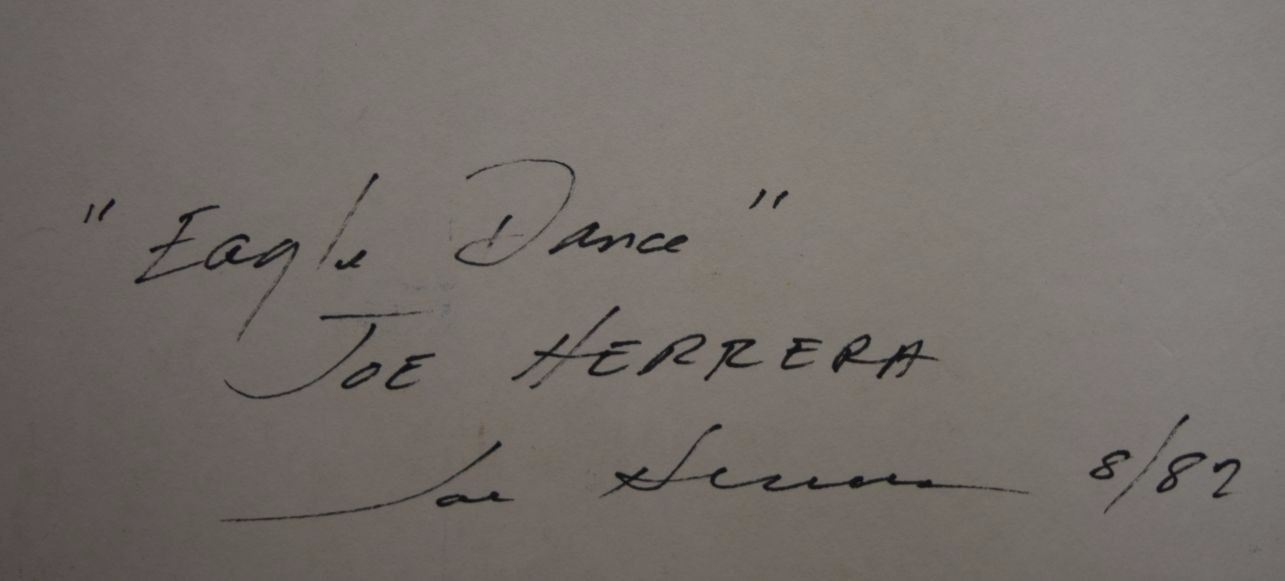 "Eagle Dance"
JOE HERRERA
Joe Herrera 8/82